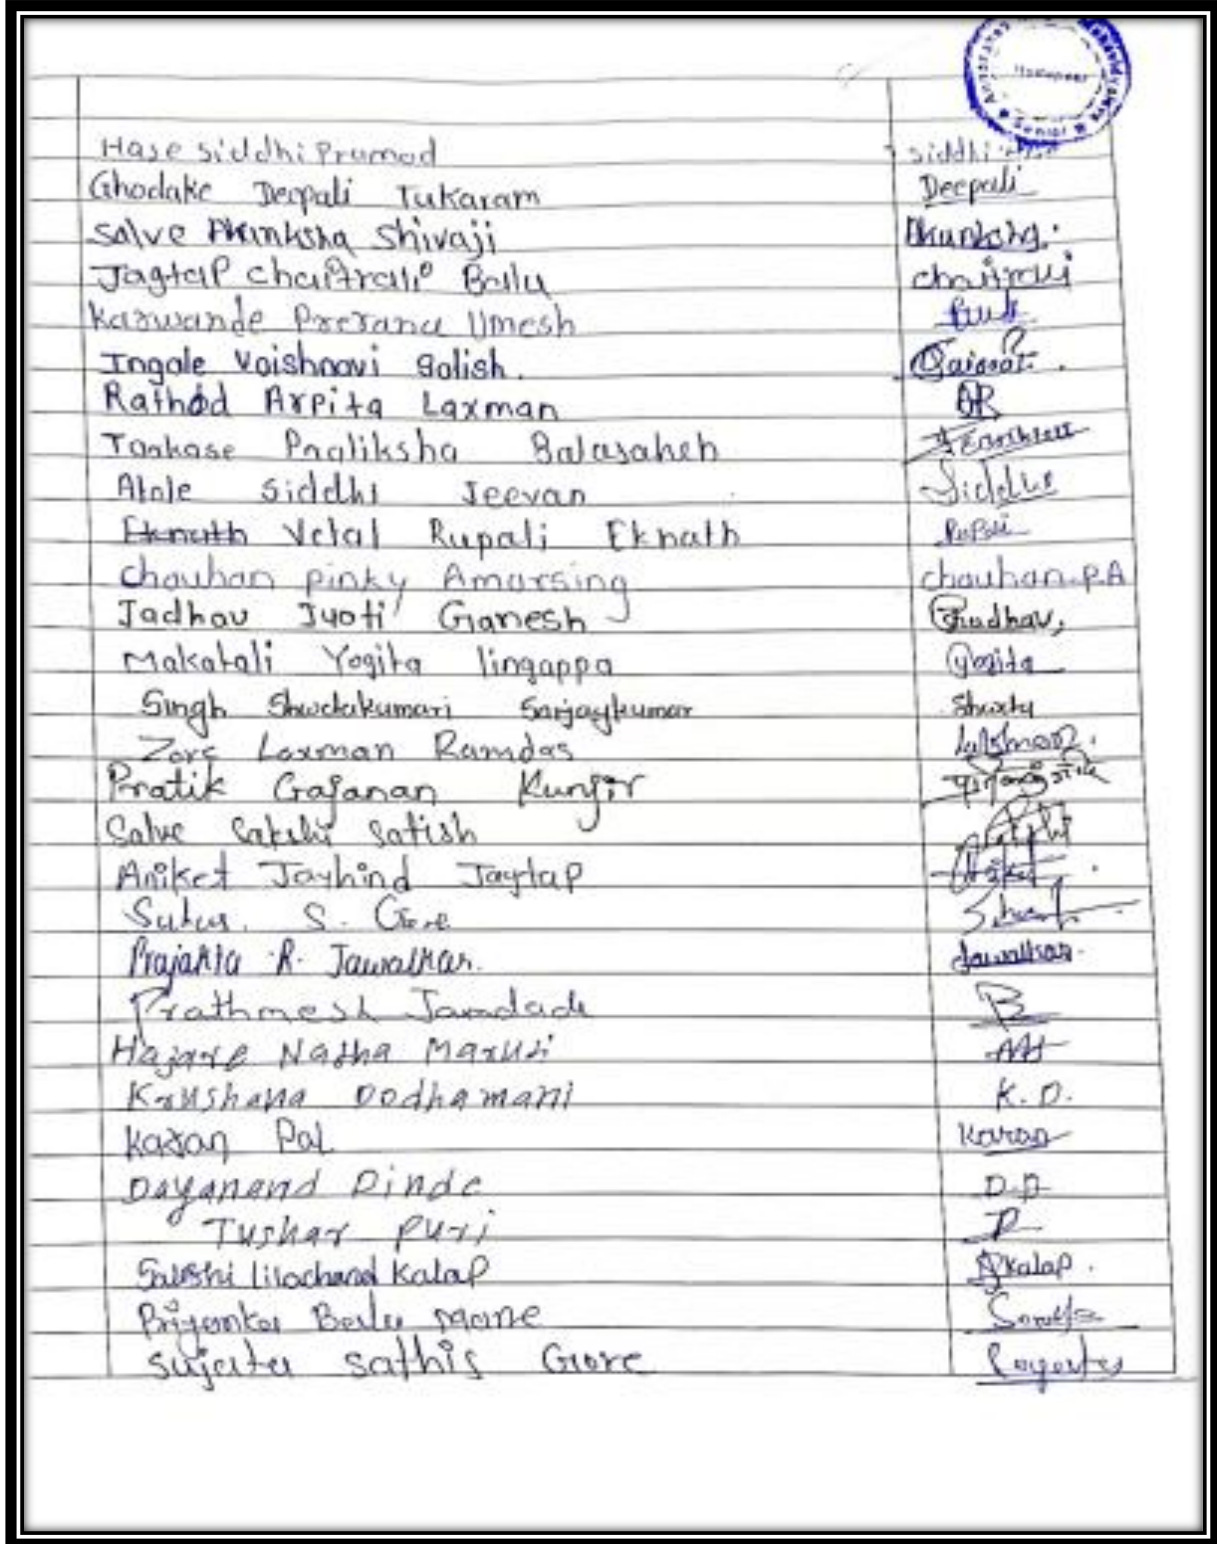 Hadapsar
Hase Siddhi Pramod siddhi
Ghodake Deepali Tukaram Deepali
Salve Akanksha Shivaji
Jagtap Chaitrali Balu chaitrali
Karwande Prerana Umesh
Ingale Vaishnavi Satish.
Rathod Arpita Laxman AR
Tonkase Pratiksha Balasaheb
Atole Siddhi Jeevan Siddhi
Eknath Vetal Rupali Eknath Rupali
Chauhan pinky Amarsing chauhan.P.A
Jadhav Jyoti Ganesh Jadhav,
Makatali Yogita lingappa Yogita
Singh Shwetakumari Sanjaykumar Shweta
Zore Laxman Ramdas
Pratik Gajanan Kunjir
Salve Sakshi Satish
Aniket Jayhind Jagtap Aniket
S. Gore
Prajakta R. Jawalkar. Jawalkar.
Prathmesh Jamdade
Hajare Natha Maruti
Krushana Dodhamani K.D.
Karan Pal Karan
Dayanand Dinde D.D
Tushar Puri P
Sakshi lilachand Kalap Kalap.
Priyanka Balu Mane
Sujata Sathis Gore